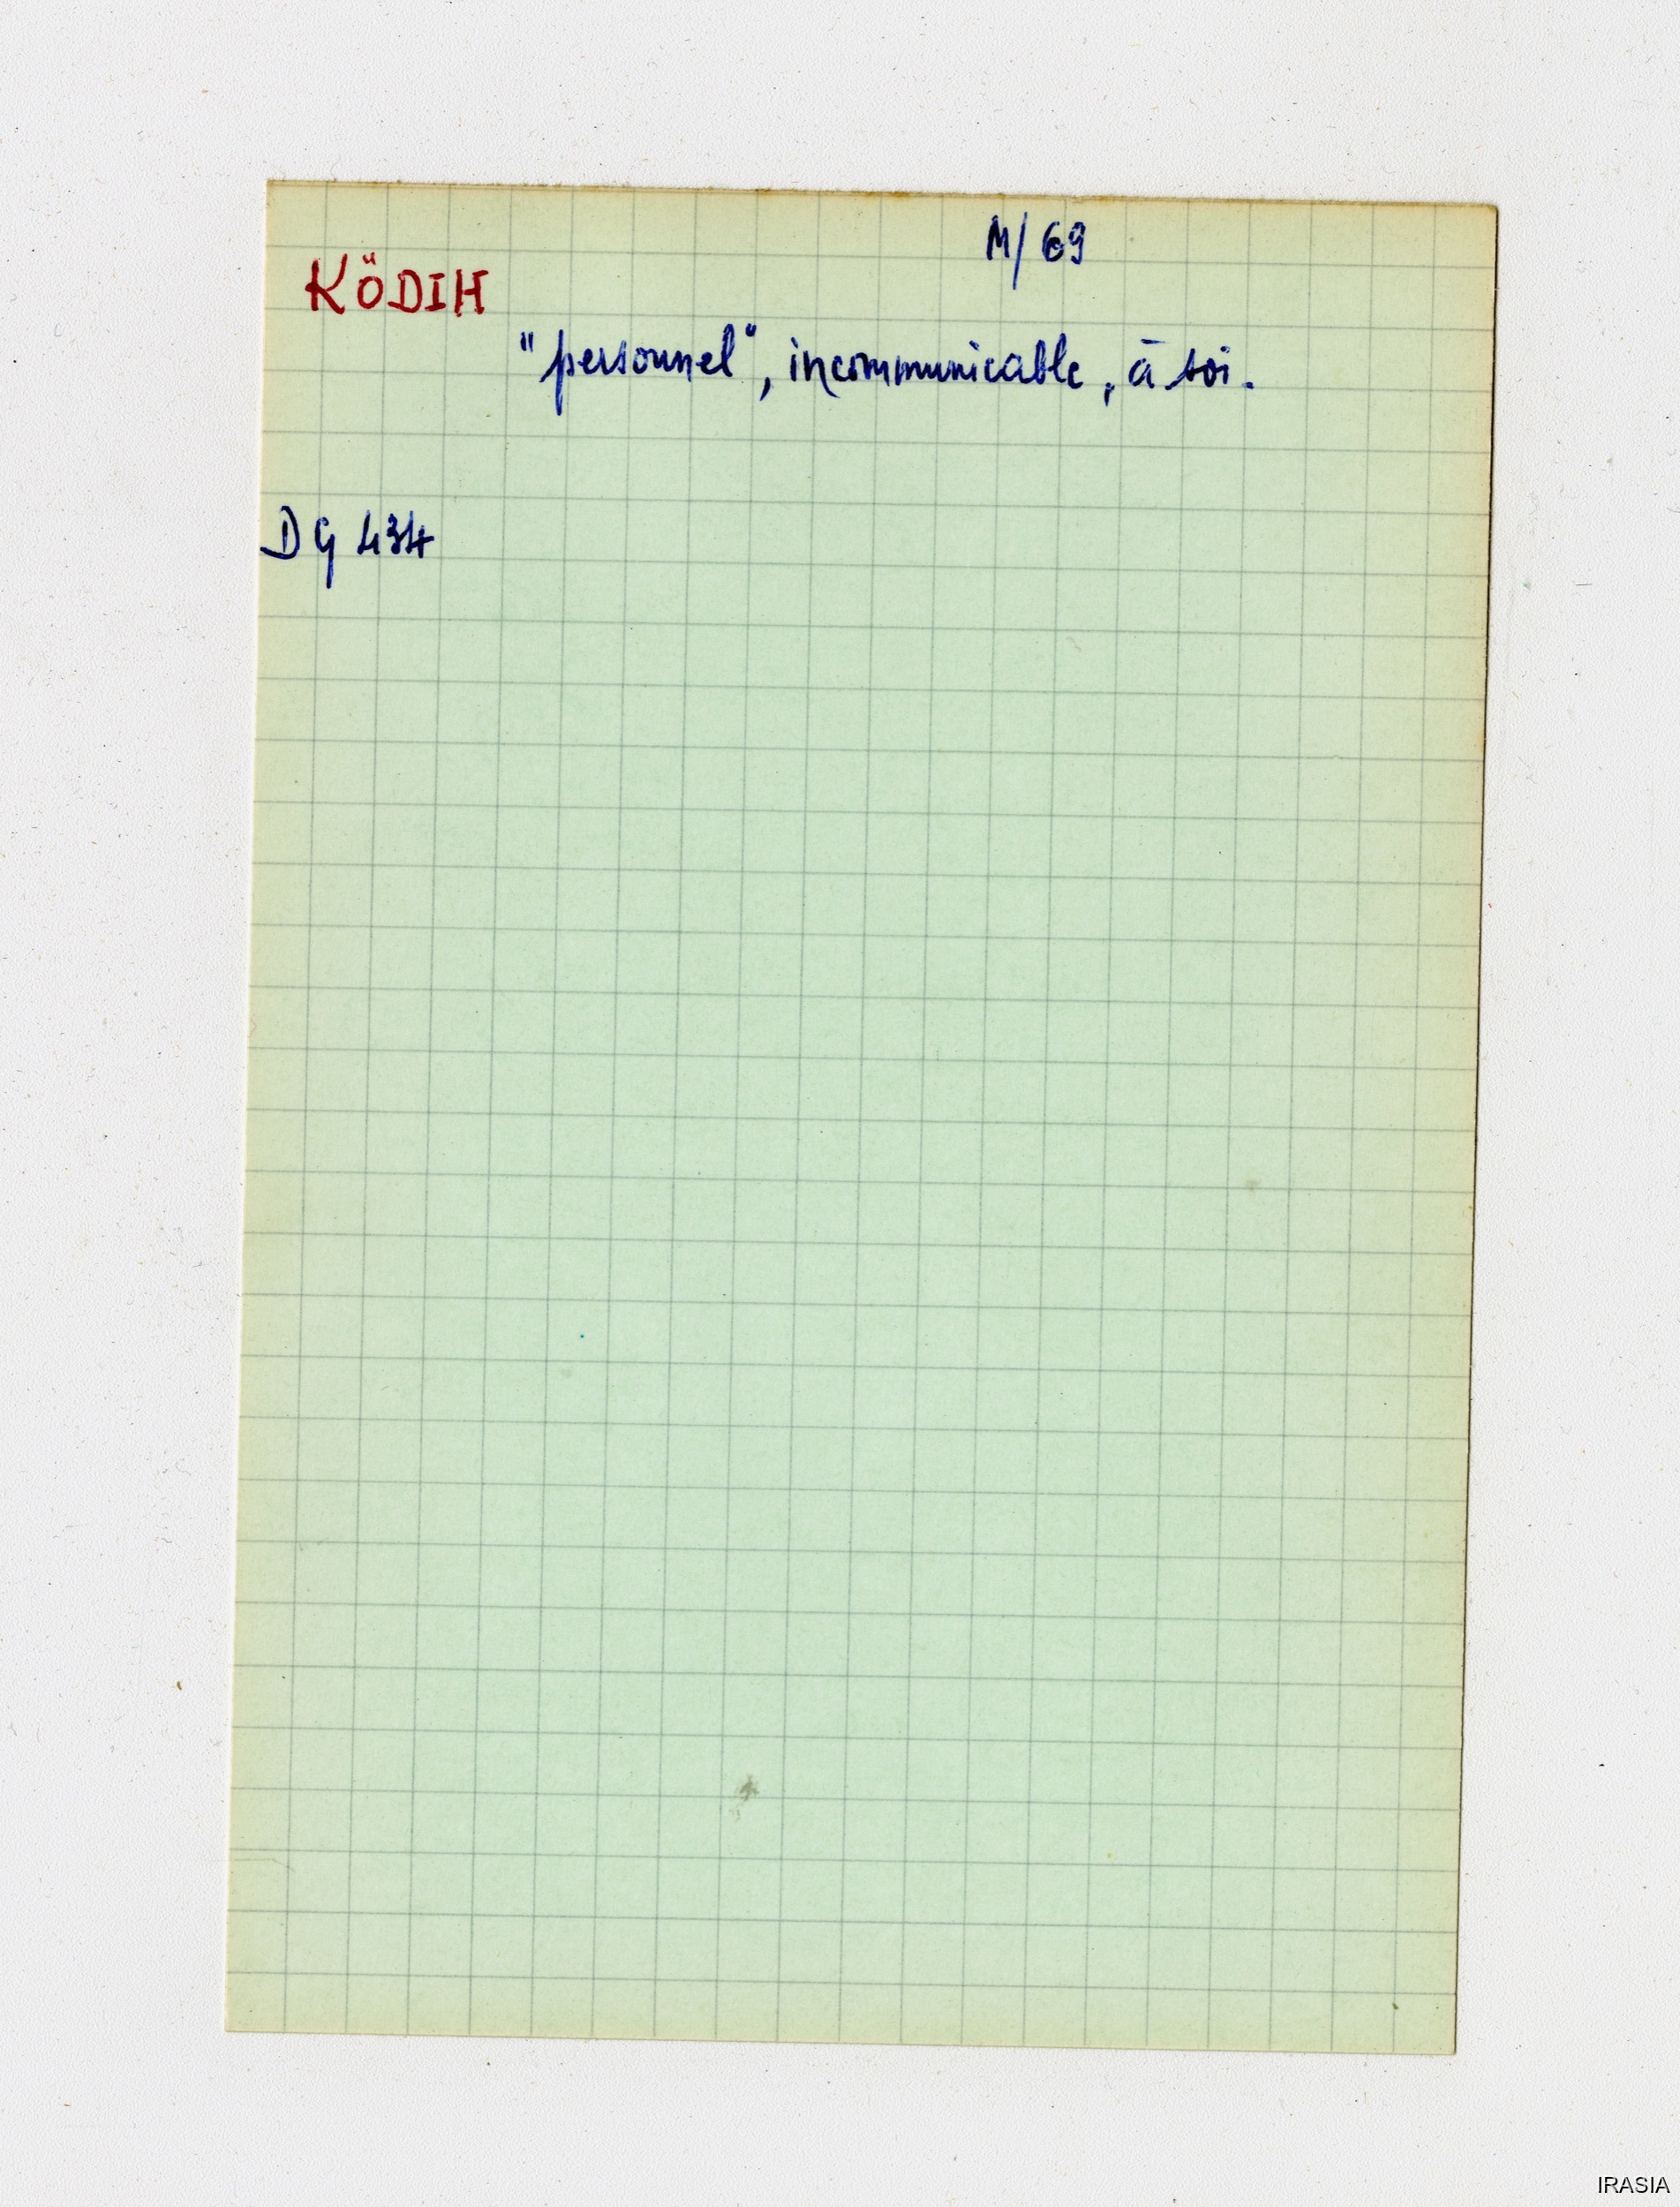 M/69
KÖDIH
"personnel", incommunicable, à soi.
DG 434
IRASIA